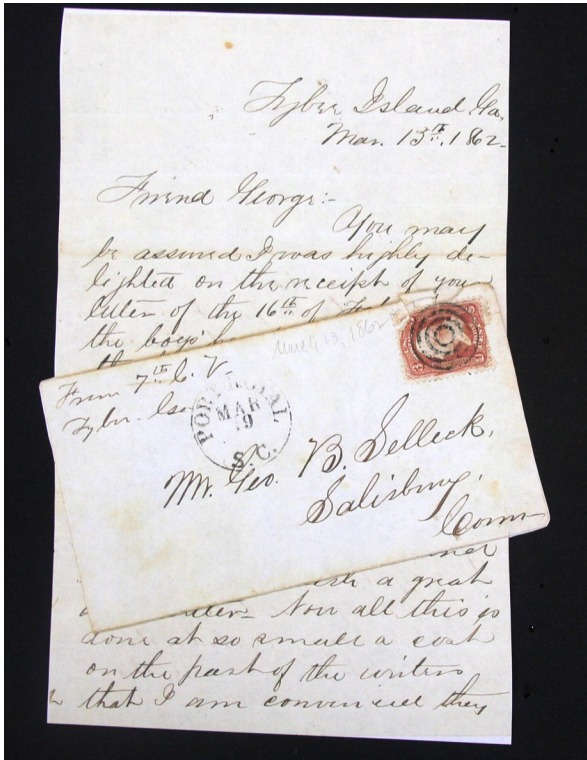 Tybee Island Ga.
Mar. 13th. 1862-
Friend George:-
You may
be assured I was highly de-
lighted on the receipt of your
letter of the 16th of
the boys'
March 13, 1862
From 7th C. V.
Tybee Is
PORT ROYAL
MAR
19
S.C.
Mr. Geo. B. Selleck,
Salisbury,
Conn
a great
Now all this is
done at so small a cost
on the part of the writers
that I am convinced they